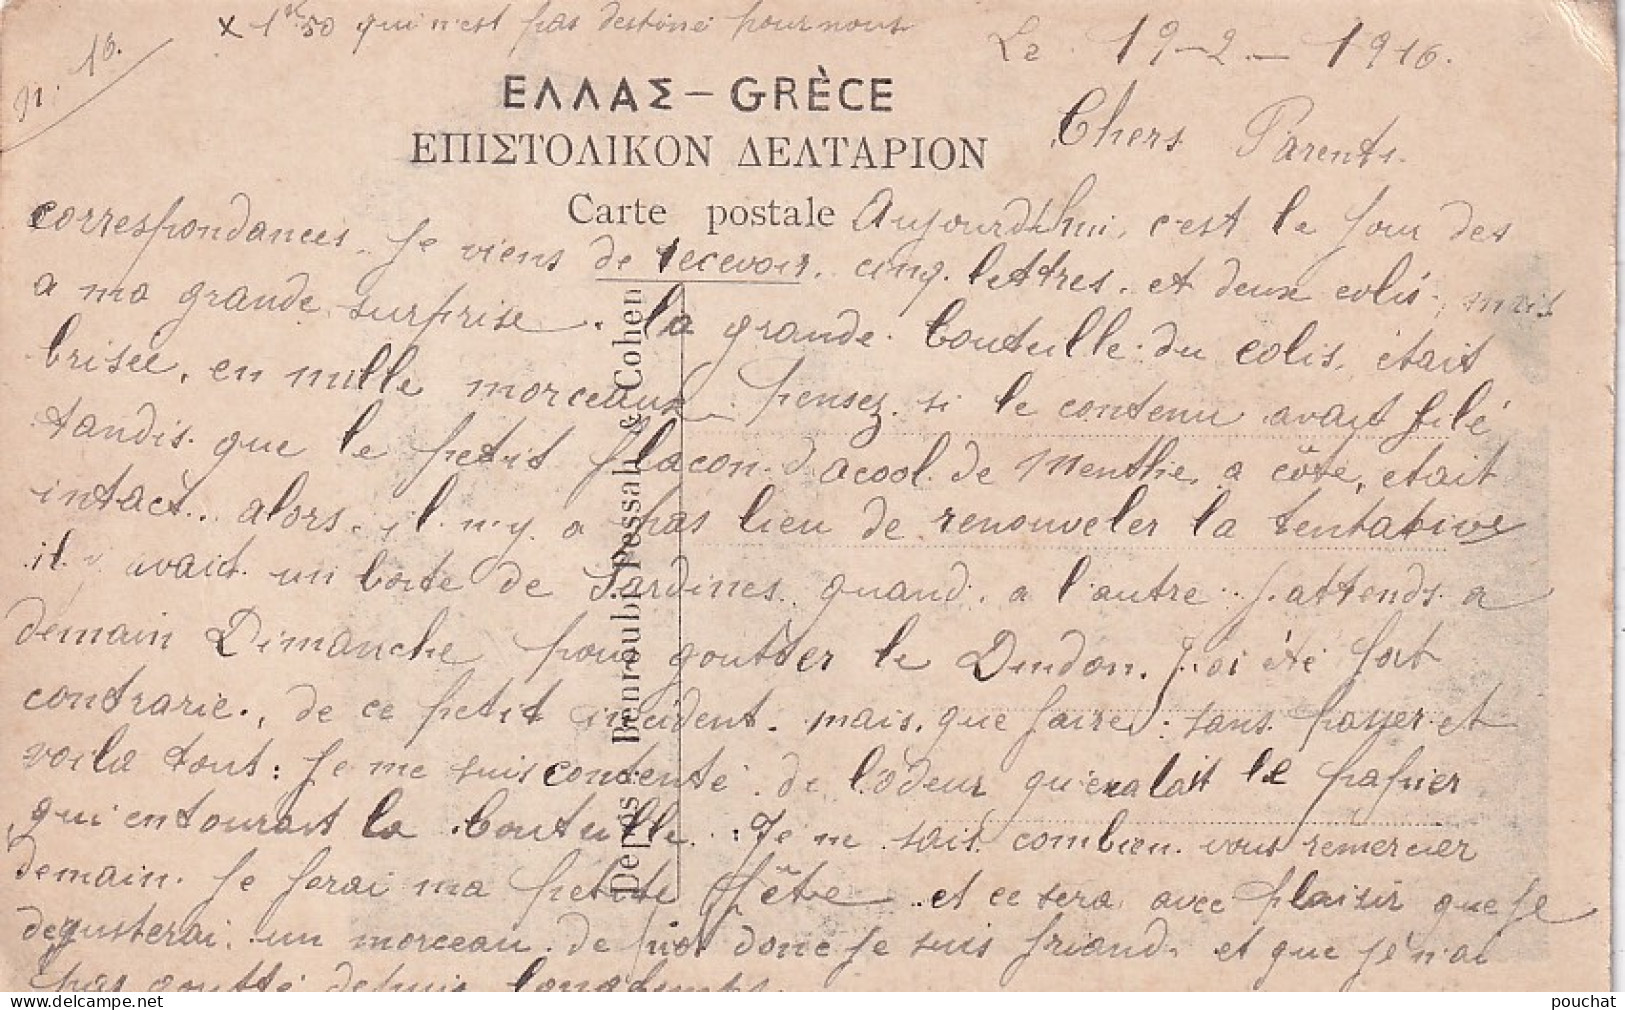 x 1 fr 50 qui n'est pas destiné pour nous
n. 16.
Le 19-2-1916.
ΕΛΛΑΣ – GRÈCE
ΕΠΙΣΤΟΛΙΚΟΝ ΔΕΛΤΑΡΙΟΝ
Carte postale
Chers Parents.
Aujourd'hui, c'est le jour des
correspondances. Je viens de recevoir. cinq. lettres. et deux colis. mais
a ma grande surprise. la grande bouteille du colis. était
brisée, en mille morceaux pensez si le contenu avait filé
tandis que le petit flacon d'acool de Menthe, a côté, etait
intact. alors. il n'y a pas lieu de renouveler la tentative
il y avait un boite de Sardines quand a l'autre j'attends a
demain Dimanche pour goutter le Dindon. J'ai été fort
contrarie, de ce petit incident. mais, que faire: sans payer et
voila tout: Je me suis contenté de l'odeur qu'exalait le papier
qui entourait la bouteille. Je ne sais combien vous remercier
Demain. Je ferai ma petite fête et ce sera avec plaisir que je
degusterai un morceau de donc je suis friand. et que je n'ai
pas goutté depuis longtemps.
Dépôsé Benroubi Pessah & Cohen
pouchat